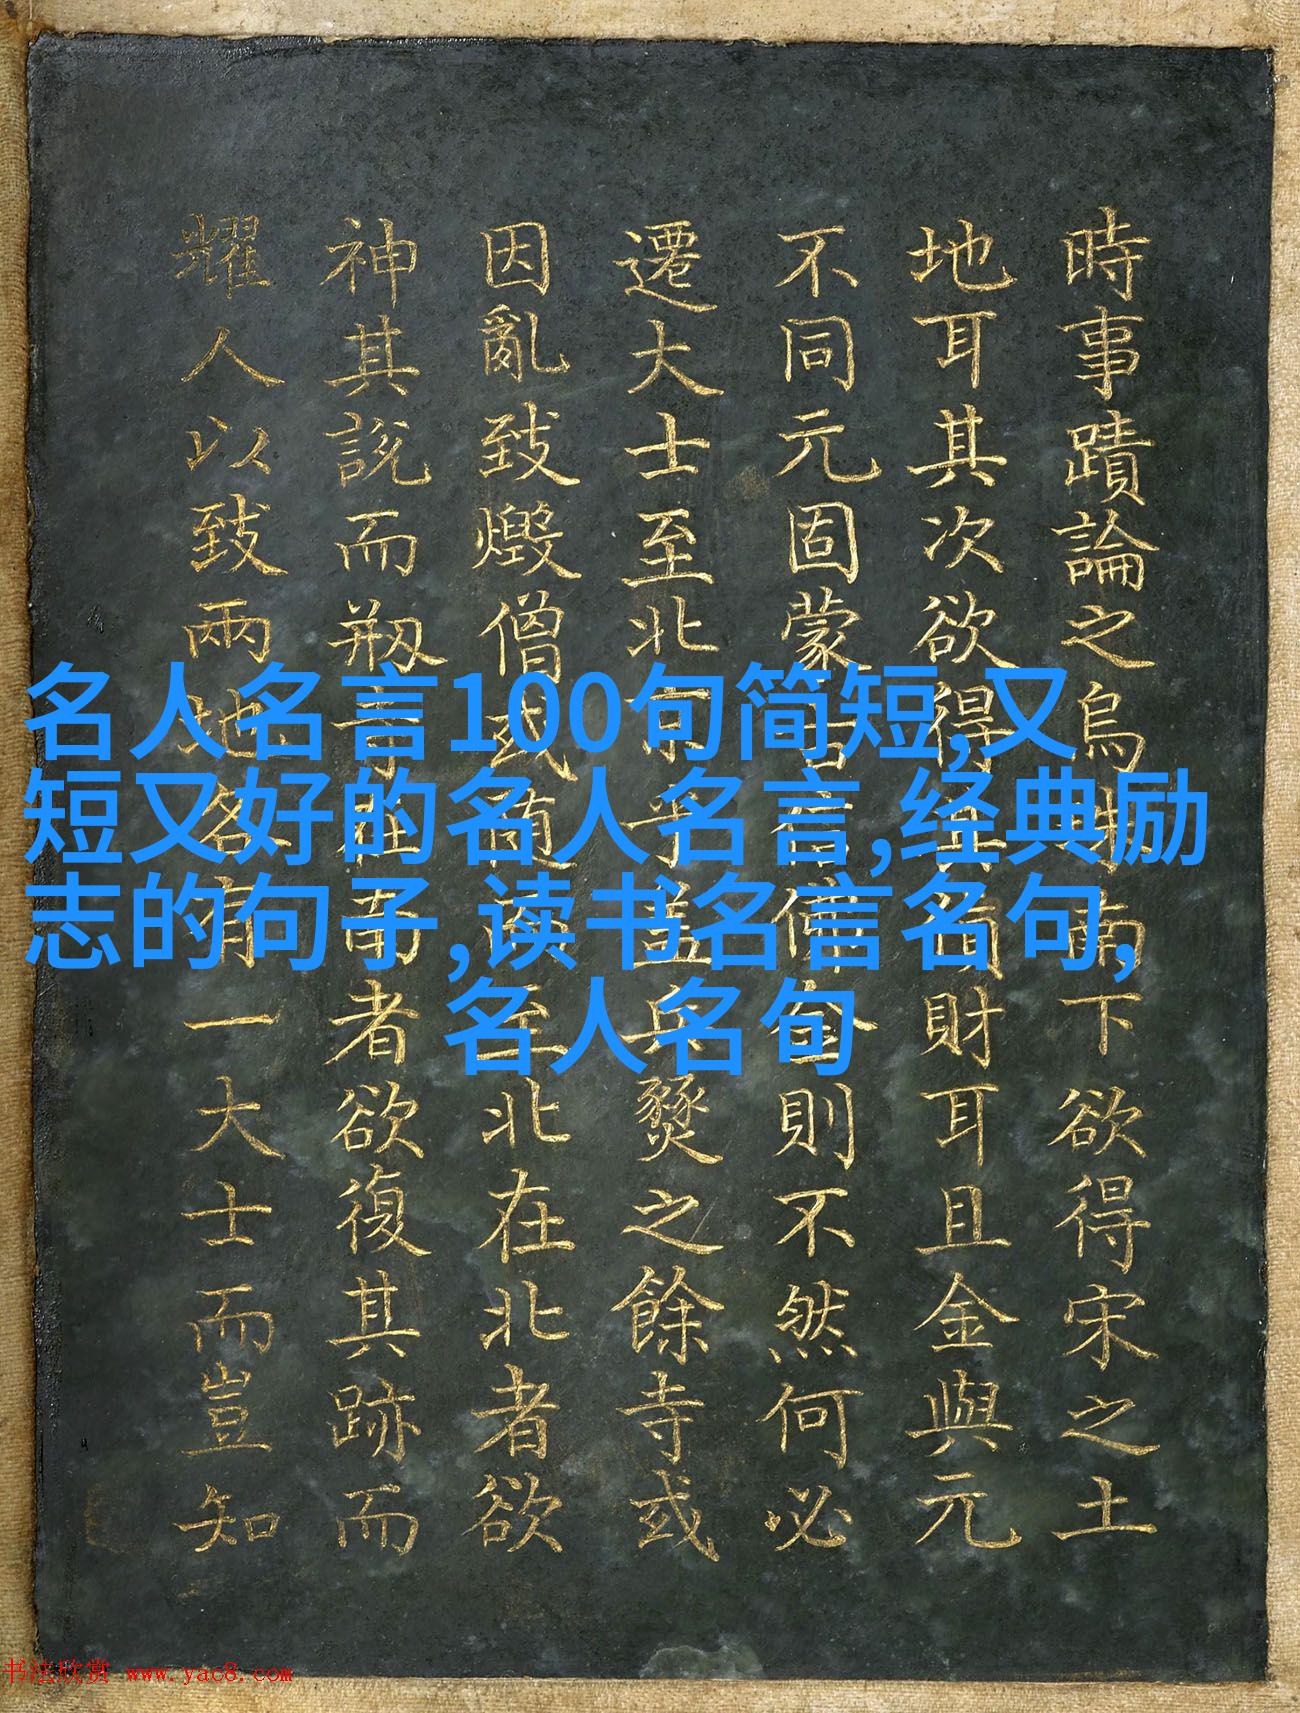 時事蹟論之烏珠南下欲得宋之土
地耳其次欲得其貨財耳且金與元
不同元固蒙古信佛金則不然何必
遷大士至北京乎蓋兵燹之餘寺或
因亂致燬僧或隨至北在北者欲
神其說而剏寺在南者欲復其跡而
耀人以致兩地各有一大士而豈知
名人名言100句简短,又
短又好的名人名言,经典励
志的句子,读书名言名句,
名人名句
书法欣赏 www.yac8.com